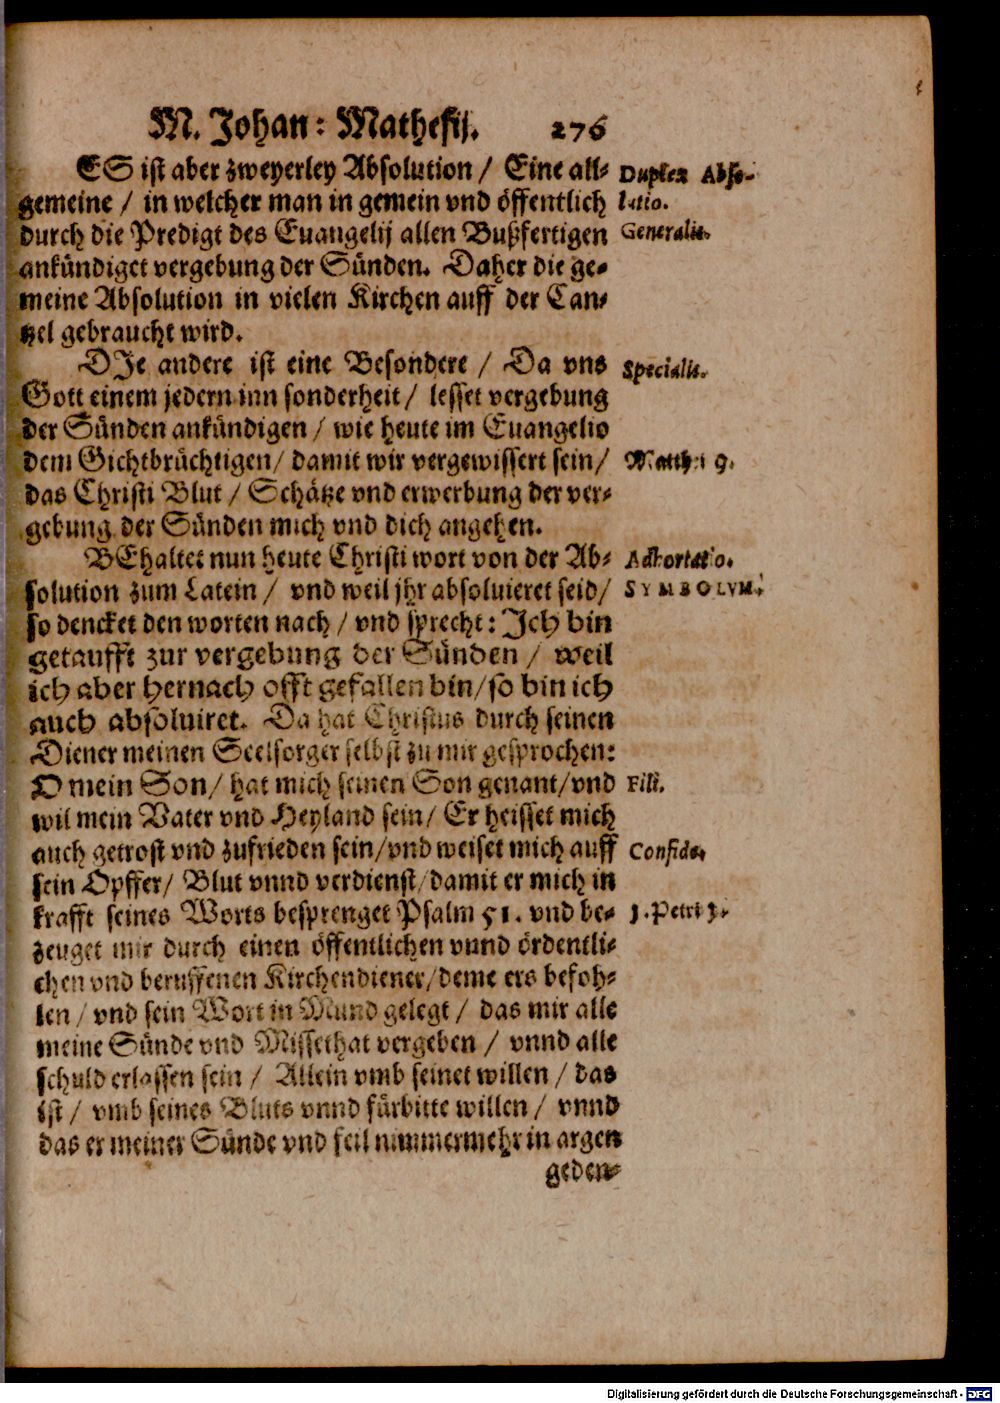 M. Johan: Mathesij. 276
ES ist aber zweyerley Absolution / Eine all-
gemeine / in welcher man in gemein vnd öffentlich
durch die Predigt des Euangelij allen Bußfertigen
ankündiget vergebung der Sünden. Daher die ge-
meine Absolution in vielen Kirchen auff der Can-
tzel gebraucht wird.
Duplex Abso-
lutio.
Generalis.
DIe andere ist eine Besondere / Da vns
Gott einem jedern inn sonderheit / lesset vergebung
der Sünden ankündigen / wie heute im Euangelio
dem Gichtbrüchtigen / damit wir vergewissert sein /
das Christi Blut / Schätze vnd erwerbung der ver-
gebung der Sünden mich vnd dich angehen.
Specialis.
Matth: 9.
BEhaltet nun heute Christi wort von der Ab-
solution zum Latein / vnd weil jhr absoluieret seid /
so dencket den worten nach / vnd sprecht: Ich bin
getaufft zur vergebung der Sünden / weil
ich aber hernach offt gefallen bin / so bin ich
auch absoluiret. Da hat Christus durch seinen
Diener meinen Seelsorger selbst zu mir gesprochen:
O mein Son / hat mich seinen Son genant / vnd
wil mein Vater vnd Heyland sein / Er heisset mich
auch getrost vnd zufrieden sein / vnd weiset mich auff
sein Opffer / Blut vnnd verdienst / damit er mich in
krafft seines Worts besprenget Psalm 51. vnd be-
zeuget mir durch einen öffentlichen vnnd ördentli-
chen vnd beruffenen Kirchendiener / deme ers befoh-
len / vnd sein Wort in Mund gelegt / das mir alle
meine Sünde vnd Missethat vergeben / vnnd alle
schuld erlassen sein / Allein vmb seinet willen / das
ist / vmb seines Bluts vnnd fürbitte willen / vnnd
das er meiner Sünde vnd feil nimmermehr in argen
geden-
Adhortatio.
SYMBOLVM.
Fili.
Confide.
1. Petri
Digitalisierung gefördert durch die Deutsche Forschungsgemeinschaft - DFG